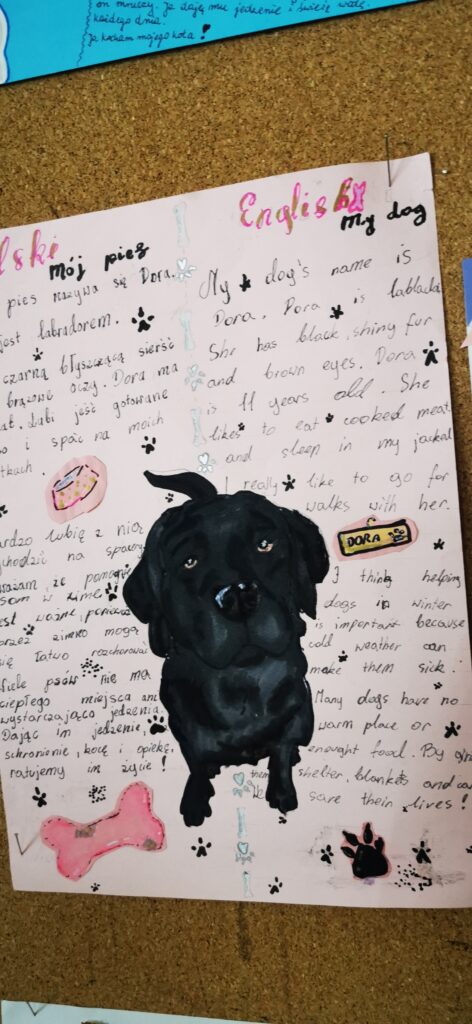 on mruczy. Ja daję mu jedzenie i świeżą wodę
każdego dnia.
Ja kocham mojego kota!
lski
Mój pies
pies nazywa się Dora.
jest labradorem.
czarną błyszczącą sierść
brązowe oczy. Dora ma
at. Lubi jeść gotowane
o i spać na moich
tkach.
ardzo lubię z nią
chodzić na spacery
ważam, że
som w zimie
est ważne, ponieważ
przez zimno mogą
się łatwo rozchorować
iele psów nie ma
ciepłego miejsca ani
wystarczająco jedzenia.
Dając im jedzenie,
schronienie, koce i opiekę,
ratujemy im życie!
English
My dog
My dog's name is
Dora. Dora is
She has black, shiny fur
and brown eyes. Dora
is 11 years old. She
likes to eat cooked meat
and sleep in my jackal
I really like to go for
walks with her.
DORA
I think helping
dogs in winter
is important because
cold weather can
make them sick.
Many dogs have no
warm place or
enought food. By
them shelter, blankets and
save their lives!